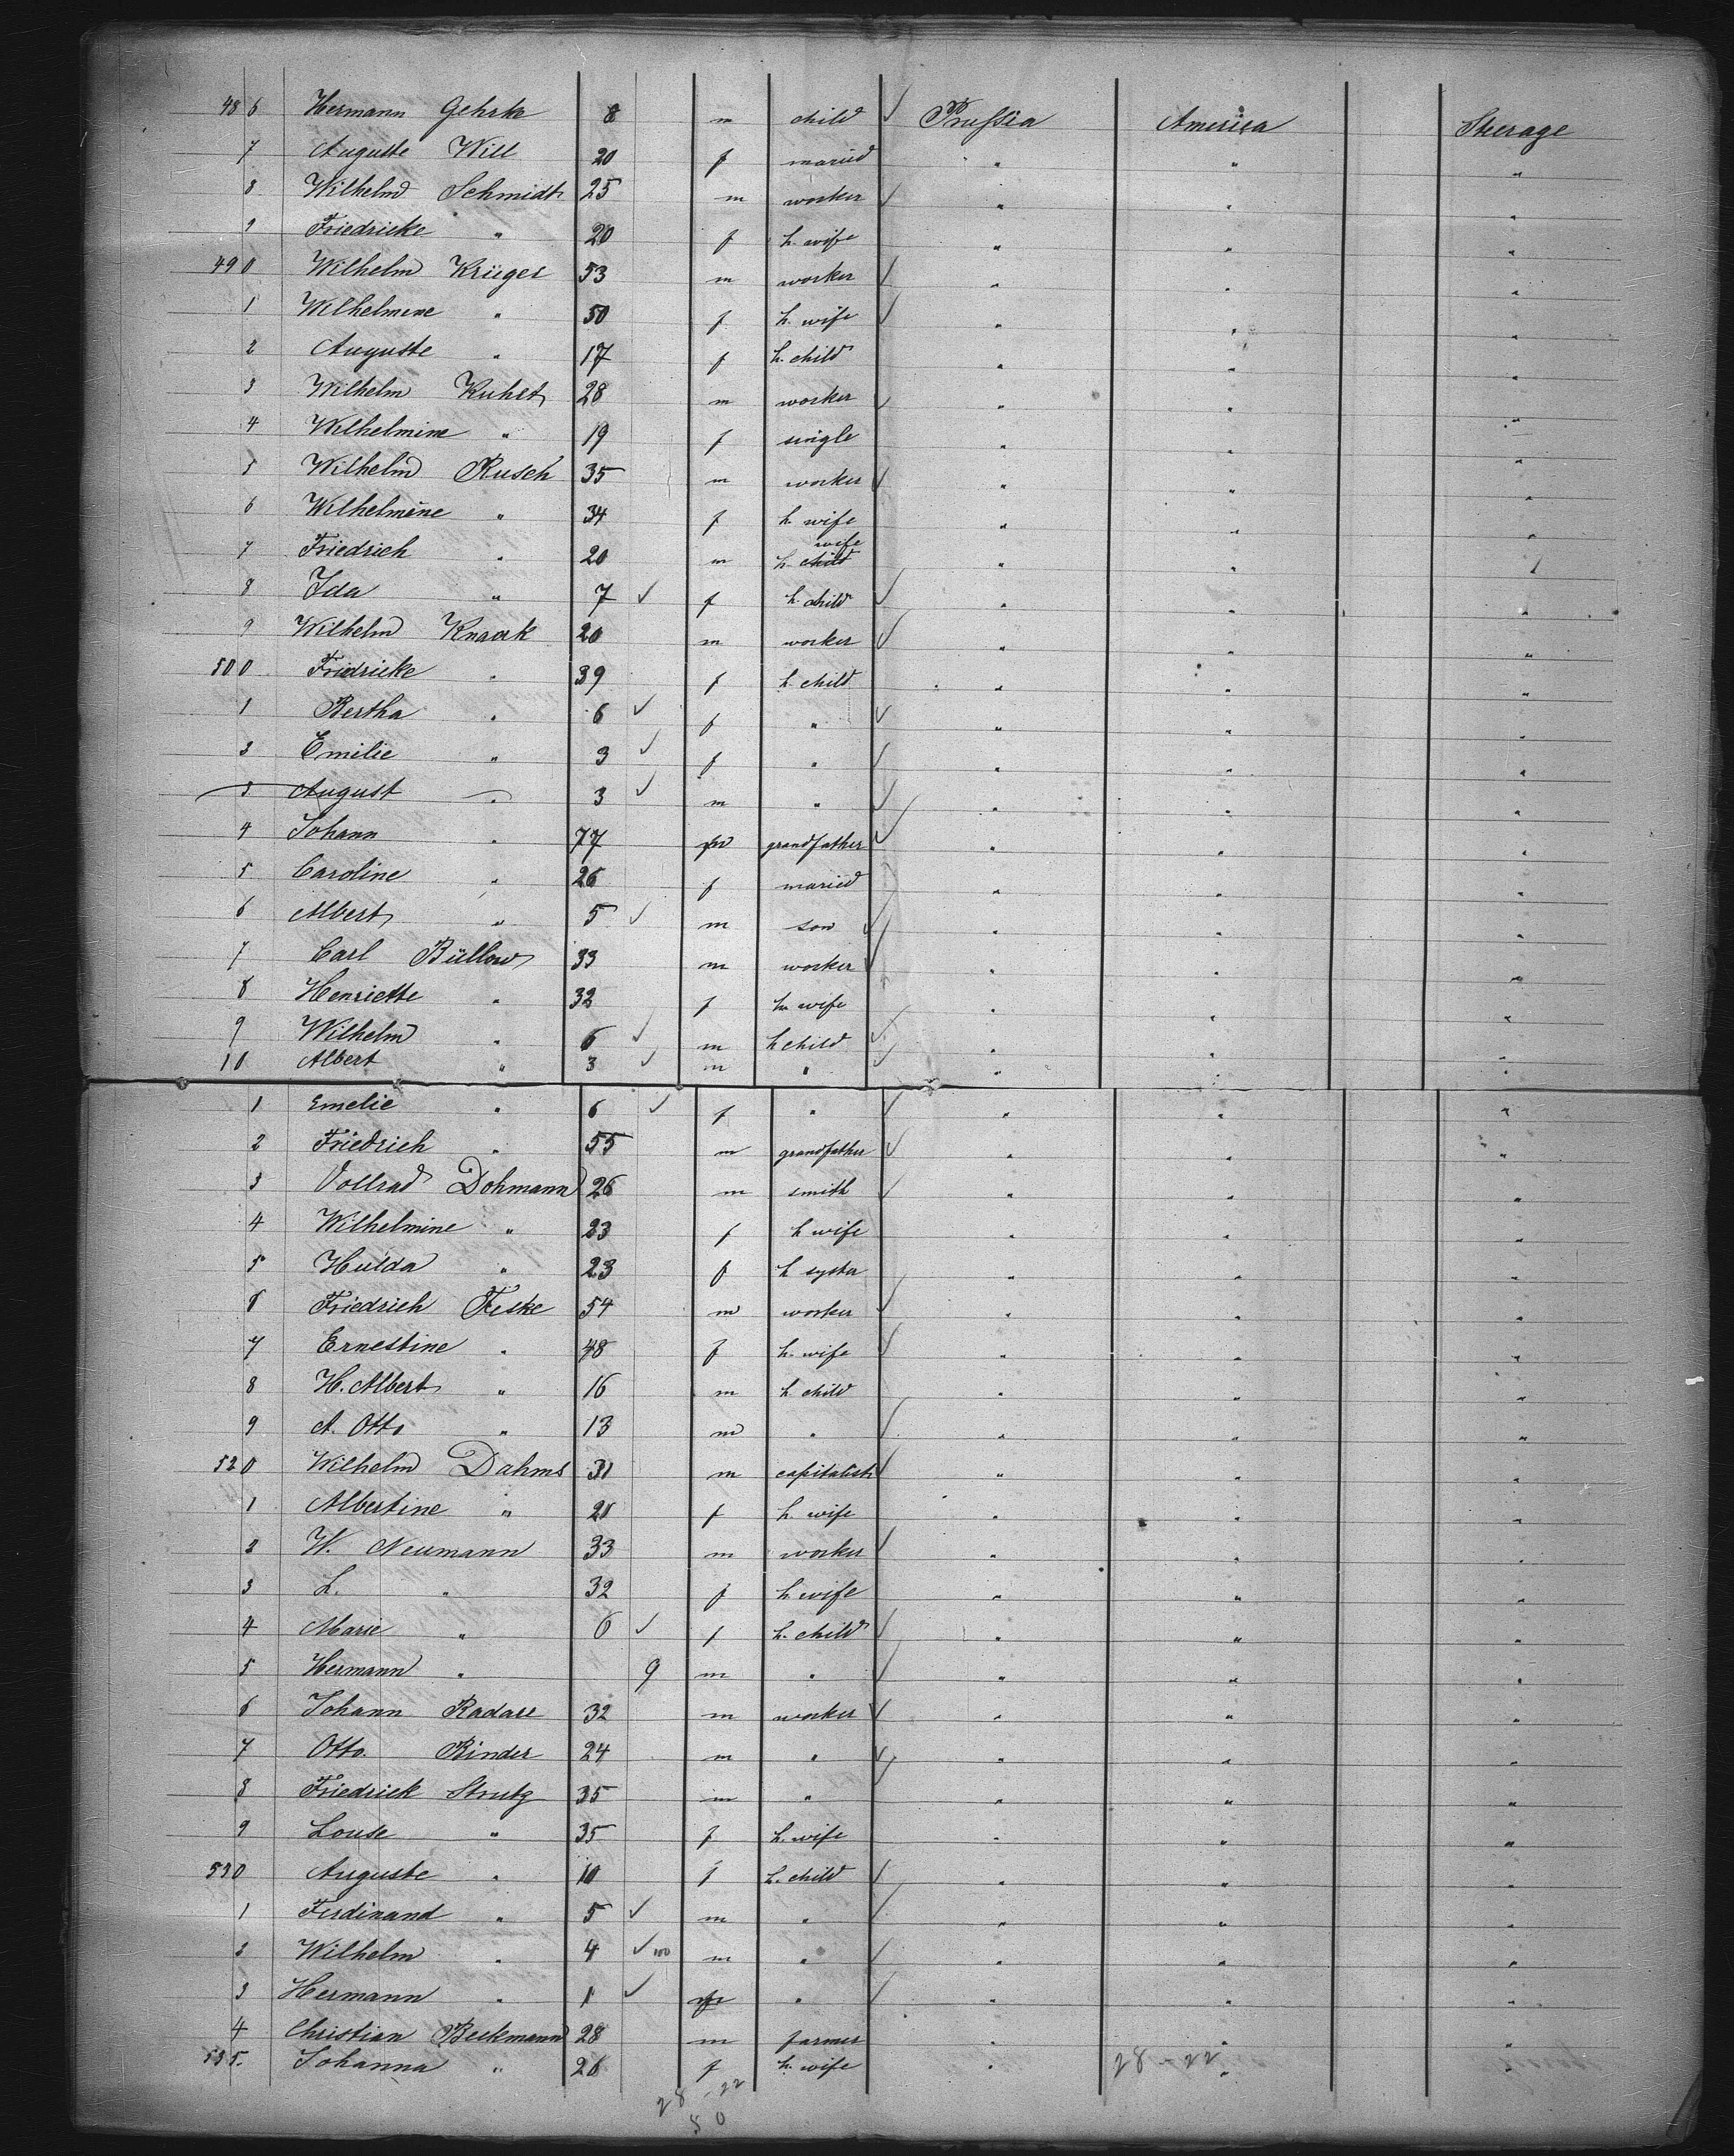 486 Hermann Gehrke 8 m child ✓ Prussia America Steerage
7 Auguste Will 20 f maried " " "
8 Wilhelm Schmidt 25 m worker ✓ " " "
9 Friedricke " 20 f h. wife " " "
490 Wilhelm Krüger 53 m worker ✓ " " "
1 Wilhelmine " 50 f h. wife ✓ " " "
2 Auguste " 17 f h. child " " "
3 Wilhelm Kuhet 28 m worker ✓ " " "
4 Wilhelmine " 19 f single " " "
5 Wilhelm Rusch 35 m worker ✓ " " "
6 Wilhelmine " 34 f h. wife " " "
7 Friedrich " 20 m h. child wife " " "
8 Ida " 7 ✓ f h. child ✓ " " "
9 Wilhelm Knaak 20 m worker ✓ " " "
500 Fridricke " 39 f h. child " " "
1 Bertha " 6 ✓ f " ✓ " " "
3 Emilie " 3 ✓ f " ✓ " " "
3 August " 3 ✓ m " ✓ " " "
4 Johann " 77 m grandfather ✓ " " "
5 Caroline " 26 f maried " " "
6 Albert " 5 ✓ m son ✓ " " "
7 Carl Büllow 33 m worker ✓ " " "
8 Henriette " 32 f h. wife " " "
9 Wilhelm " 6 ✓ m h child ✓ " " "
10 Albert " 3 ✓ m " ✓ " " "
1 Emelie " 6 ✓ f " ✓ " " "
2 Friedrich " 55 m grandfather ✓ " " "
3 Vollrad Dohmann 26 m smith ✓ " " "
4 Wilhelmine " 23 f h wife " " "
5 Hulda " 23 f h syster " " "
6 Friedrich Feske 54 m worker ✓ " " "
7 Ernestine " 48 f h. wife ✓ " " "
8 H. Albert " 16 m h. child " " "
9 A. Otto " 13 m " ✓ " " "
520 Wilhelm Dahms 31 m capitalist ✓ " " "
1 Albertine " 20 f h. wife " " "
2 W. Neumann 33 m worker ✓ " " "
3 L. " 32 f h. wife " " "
4 Marie " 6 ✓ f h. child ✓ " " "
5 Hermann " 9 m " ✓ " " "
6 Johann Radau 32 m worker ✓ " " "
7 Otto. Binder 24 m " ✓ " " "
8 Friedrick Strutz 35 m " " " "
9 Louse " 35 f h. wife " " "
530 Auguste " 10 f h. child ✓ " " "
1 Ferdinand " 5 ✓ m " ✓ " " "
2 Wilhelm " 4 ✓ 100 m " ✓ " " "
3 Hermann " 1 ✓ m " ✓ " " "
4 Christian Beckmann 28 m farmer " " "
535. Johanna " 26 f h. wife " 28-22 " "
28-22
50